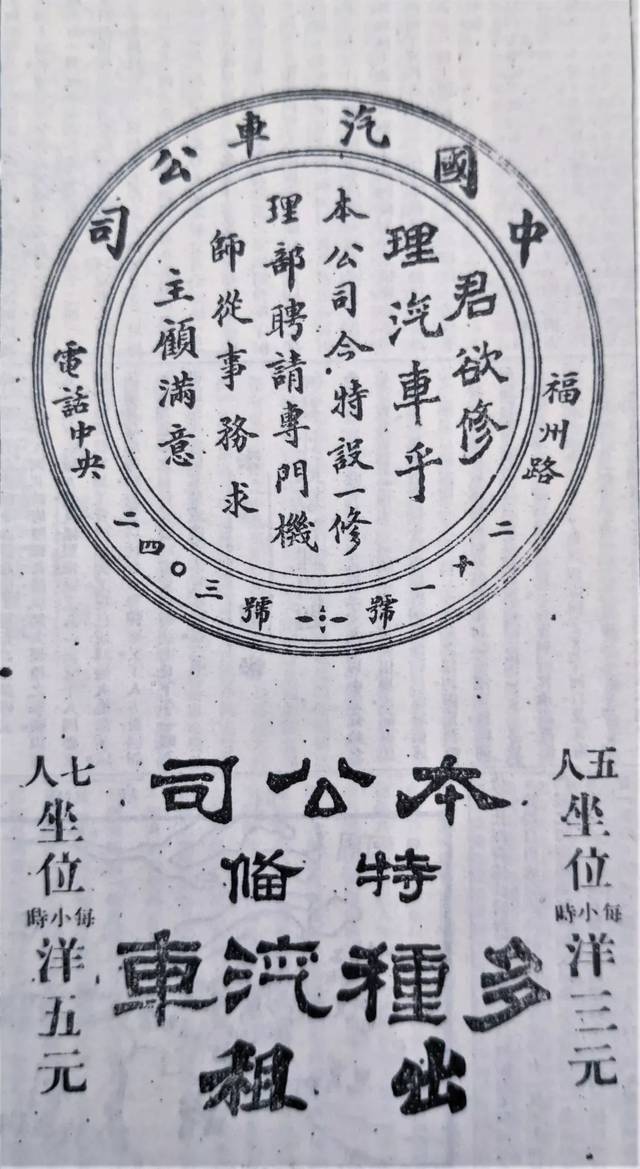 中國汽車公司
福州路二十一號
電話中央二四〇三號
君欲修
理汽車乎
本公司今特設一修
理部聘請專門機
師從事務求
主顧滿意
五人坐位每小時洋三元
本公司
特備
多種汽車
出租
七人坐位每小時洋五元